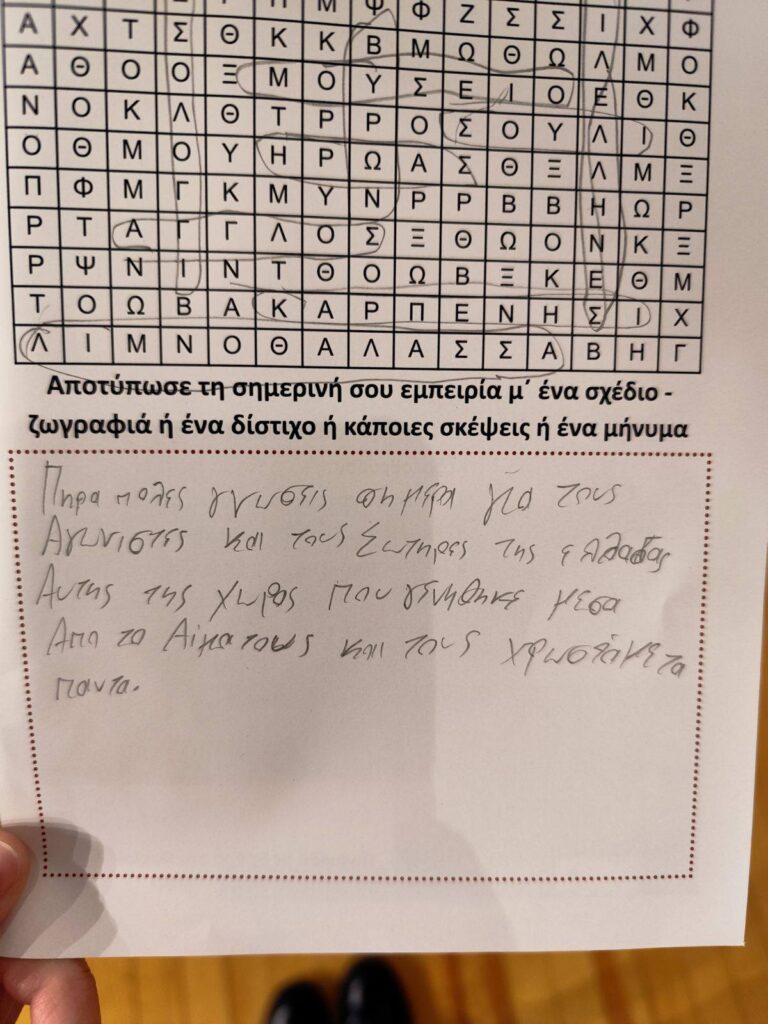 Α Χ Τ Σ Θ Κ Κ Β Μ Ω Θ Ω Λ Μ Ο
Α Θ Ο Ο Ξ Μ Ο Υ Σ Ε Ι Ο Ε Θ Κ
Ν Ο Κ Λ Θ Τ Ρ Ρ Ο Σ Ο Υ Λ Ι Θ
Ο Θ Μ Ο Υ Η Ρ Ω Α Σ Θ Ξ Λ Μ Ξ
Π Φ Μ Γ Κ Μ Υ Ν Ρ Ρ Β Β Η Ω Ρ
Ρ Τ Α Γ Γ Λ Ο Σ Ξ Θ Ω Ο Ν Κ Ξ
Ρ Ψ Ν Ι Ν Τ Θ Ο Ω Β Ξ Κ Ε Θ Μ
Τ Ο Ω Β Α Κ Α Ρ Π Ε Ν Η Σ Ι Χ
Λ Ι Μ Ν Ο Θ Α Λ Α Σ Σ Α Β Η Γ
Αποτύπωσε τη σημερινή σου εμπειρία μ΄ ένα σχέδιο -
ζωγραφιά ή ένα δίστιχο ή κάποιες σκέψεις ή ένα μήνυμα
Πηρα πολες γνωσεις σημερα για τους
Αγωνιστες και τους Σωτηρες της ελλαδας
Αυτης της χωρος που γενηθηκε μεσα
Απο το Αιμα τους και τους χρωσταμε τα
παντα.